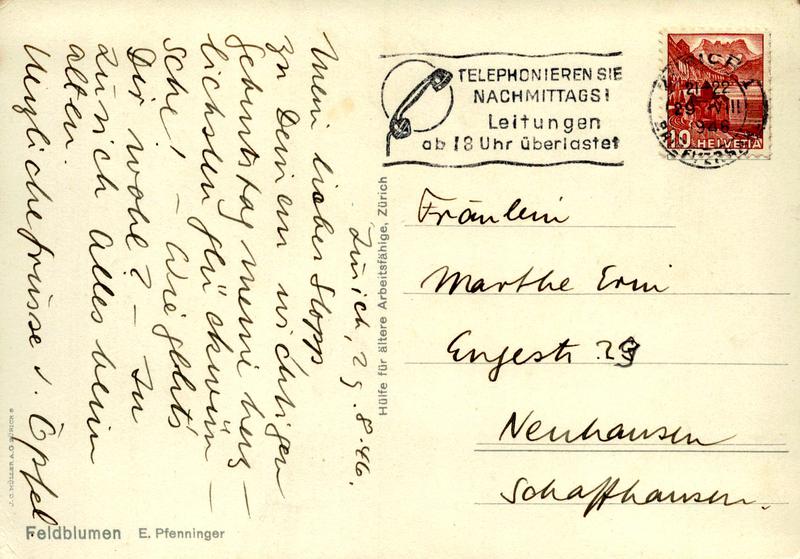 Zürich, 29.8.46.
Mein lieber Stopp
Zu Deinem wichtigen
Geburtstag meine herz-
lichsten Glückwün-
sche! – Wie gehts
Dir wohl? – In
Zürich alles beim
alten.
Herzliche Grüsse v. Öpfel.
Hülfe für ältere Arbeitsfähige, Zürich
J. C. MÜLLER A.G. ZÜRICH 8
Feldblumen E. Pfenninger
TELEPHONIEREN SIE
NACHMITTAGS!
Leitungen
ab 18 Uhr überlastet
ZÜRICH 1
21-22
29 VIII
1946
BRIEFVERSAND
10 HELVETIA
Fräulein
Marthe Erni
Engestr. 29
Neuhausen
Schaffhausen.